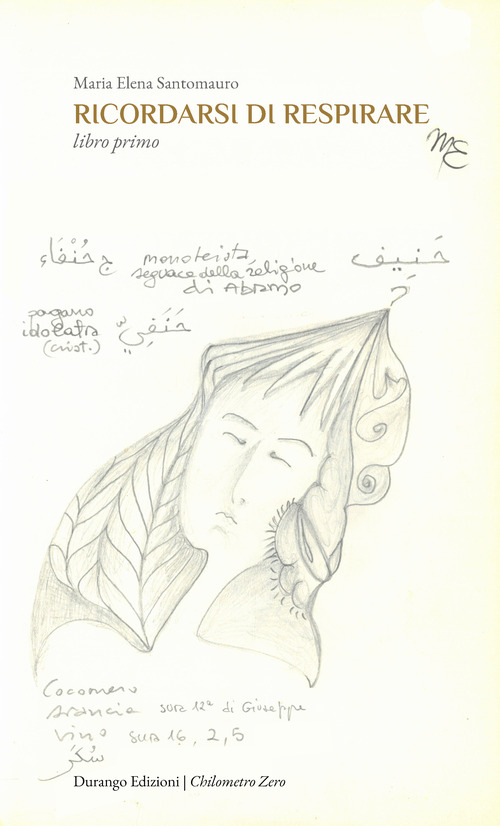 Maria Elena Santomauro
RICORDARSI DI RESPIRARE
libro primo
ME
حَنِيف monoteista ج حُنَفَاء
seguace della religione
di Abramo
?
pagano حَنَفِيّ
idolatra
(crist.)
Cocomero
Arancia sura 12ª di Giuseppe
Vino sura 16, 2,5
سُكَر
Durango Edizioni | Chilometro Zero